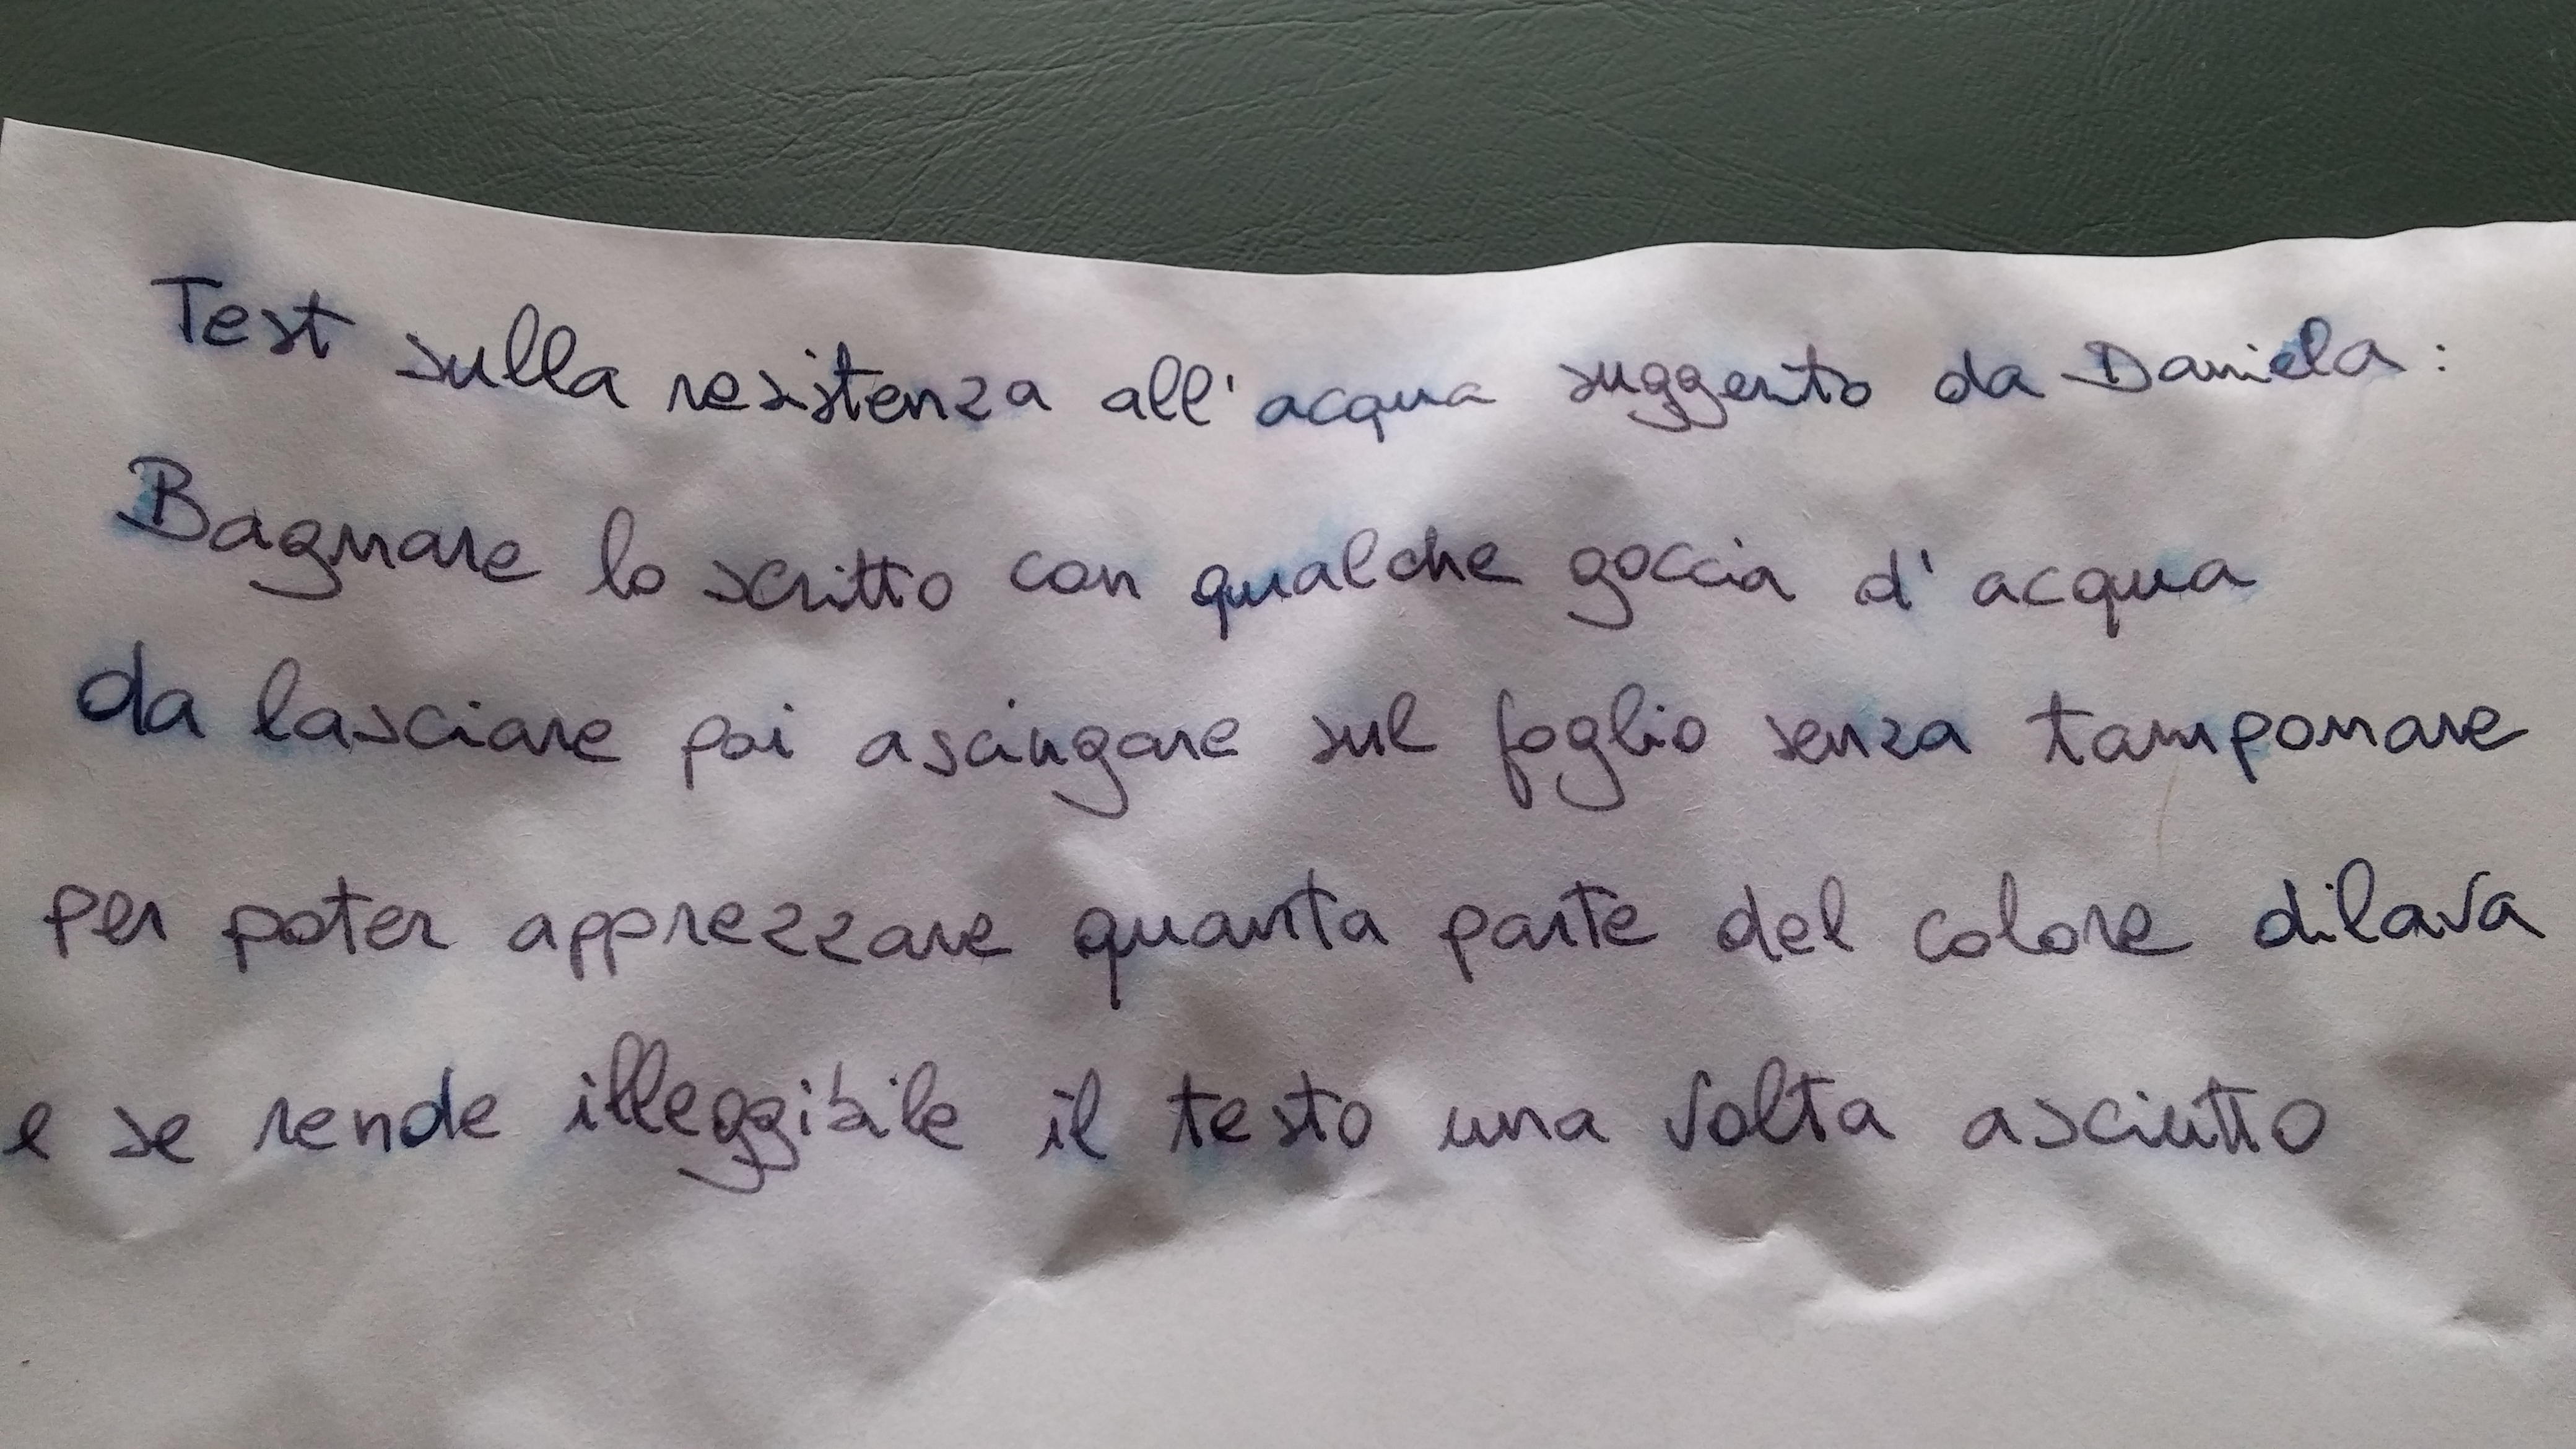 Test sulla resistenza all'acqua suggerito da Daniela:
Bagnare lo scritto con qualche goccia d'acqua
da lasciare poi asciugare sul foglio senza tamponare
per poter apprezzare quanta parte del colore dilava
e se rende illeggibile il testo una volta asciutto